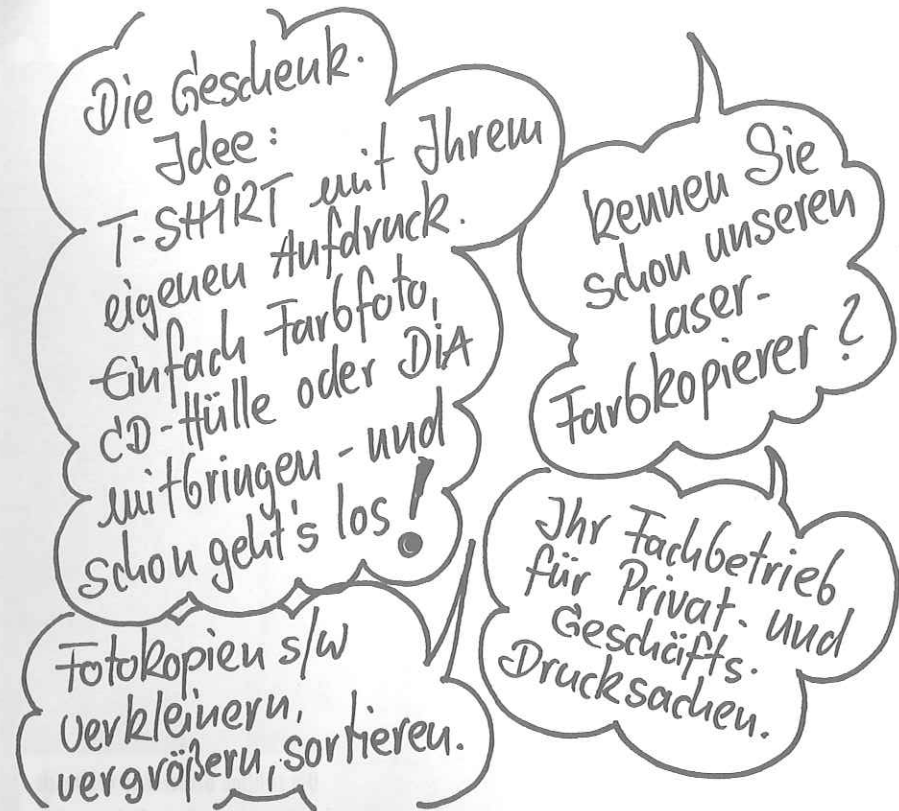 Die Geschenk-
Idee:
T-SHIRT mit Ihrem
eigenen Aufdruck.
Einfach Farbfoto,
CD-Hülle oder DiA
mitbringen - und
schon geht's los!
kennen Sie
schon unseren
Laser-
Farbkopierer?
Fotokopien s/w
verkleinern,
vergrößern, sortieren.
Ihr Fachbetrieb
für Privat- und
Geschäfts-
Drucksachen.